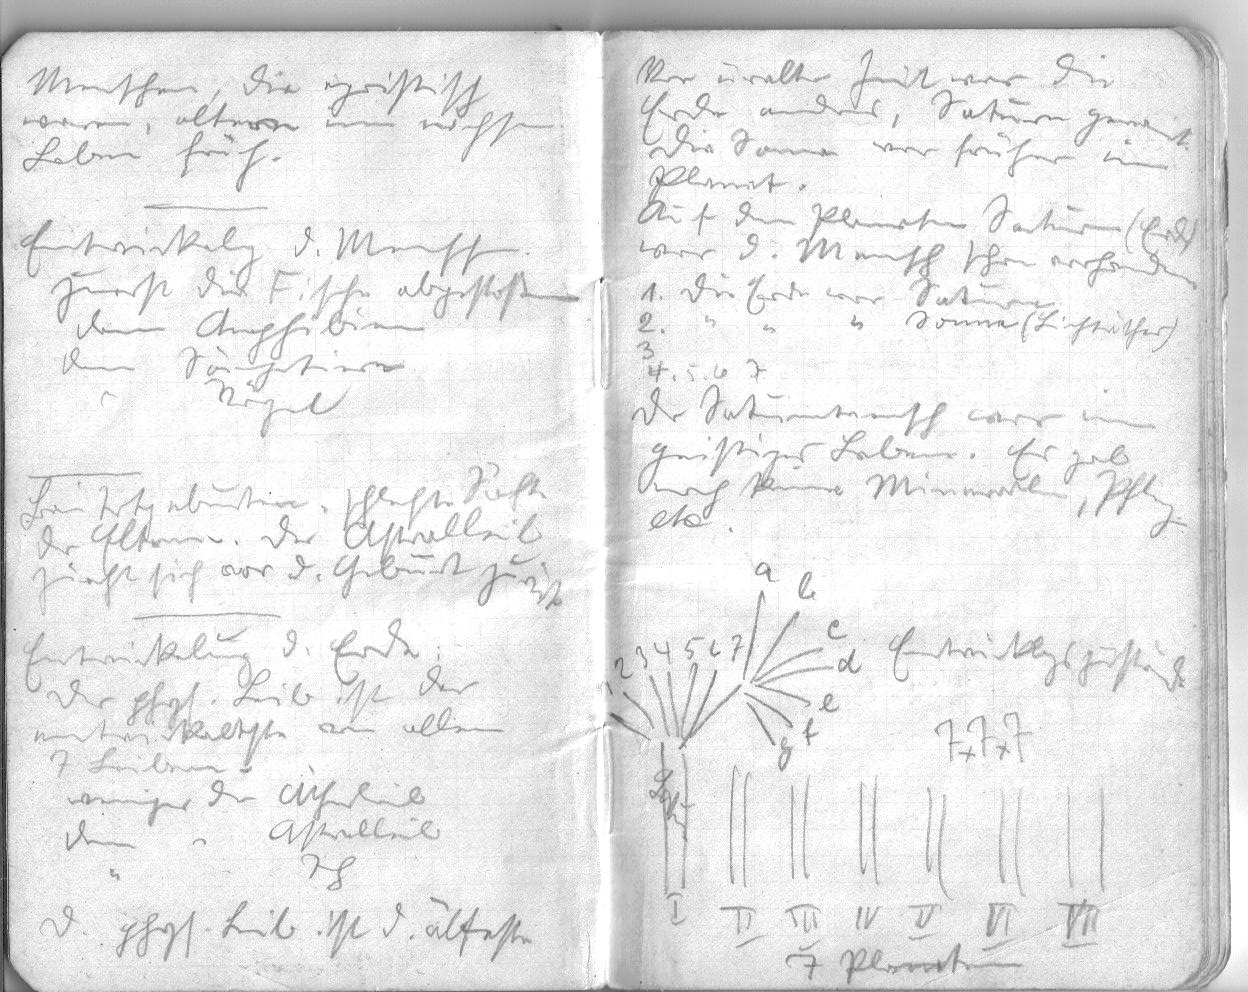 Menschen, die egoistisch
waren, altern im nächsten
Leben früh.
Entwickelg d. Menschen.
Zuerst die Fische abgestoßen
dann Amphibien
dann Säugetiere
" Vögel
schlechte Säfte
der Eltern. Der Astralleib
zieht sich vor d. Geburt zurück
Entwickelung d. Erde.
Der phys. Leib ist der
entwickeltste von allen
7 Leibern.
weniger der Ätherleib
dann " Astralleib
" Ich
D. phys. Leib ist d. älteste
Vor uralter Zeit war die
Erde anders, Saturn genannt.
Die Sonne war früher ein
Planet.
Auf dem Planeten Saturn (Erde)
war d. Mensch schon vorhanden
1. Die Erde war Saturn
2. " " " Sonne (Lichtäther)
3
4. 5. 6 7
Der Saturnmensch war ein
geistiges Leben. Es gab
noch keine Mineralien, Pflz.
etc.
a b c d e f g
1 2 3 4 5 6 7
Entwicklgszustände
7 x 7 x 7
I II III IV V VI VII
7 Planeten